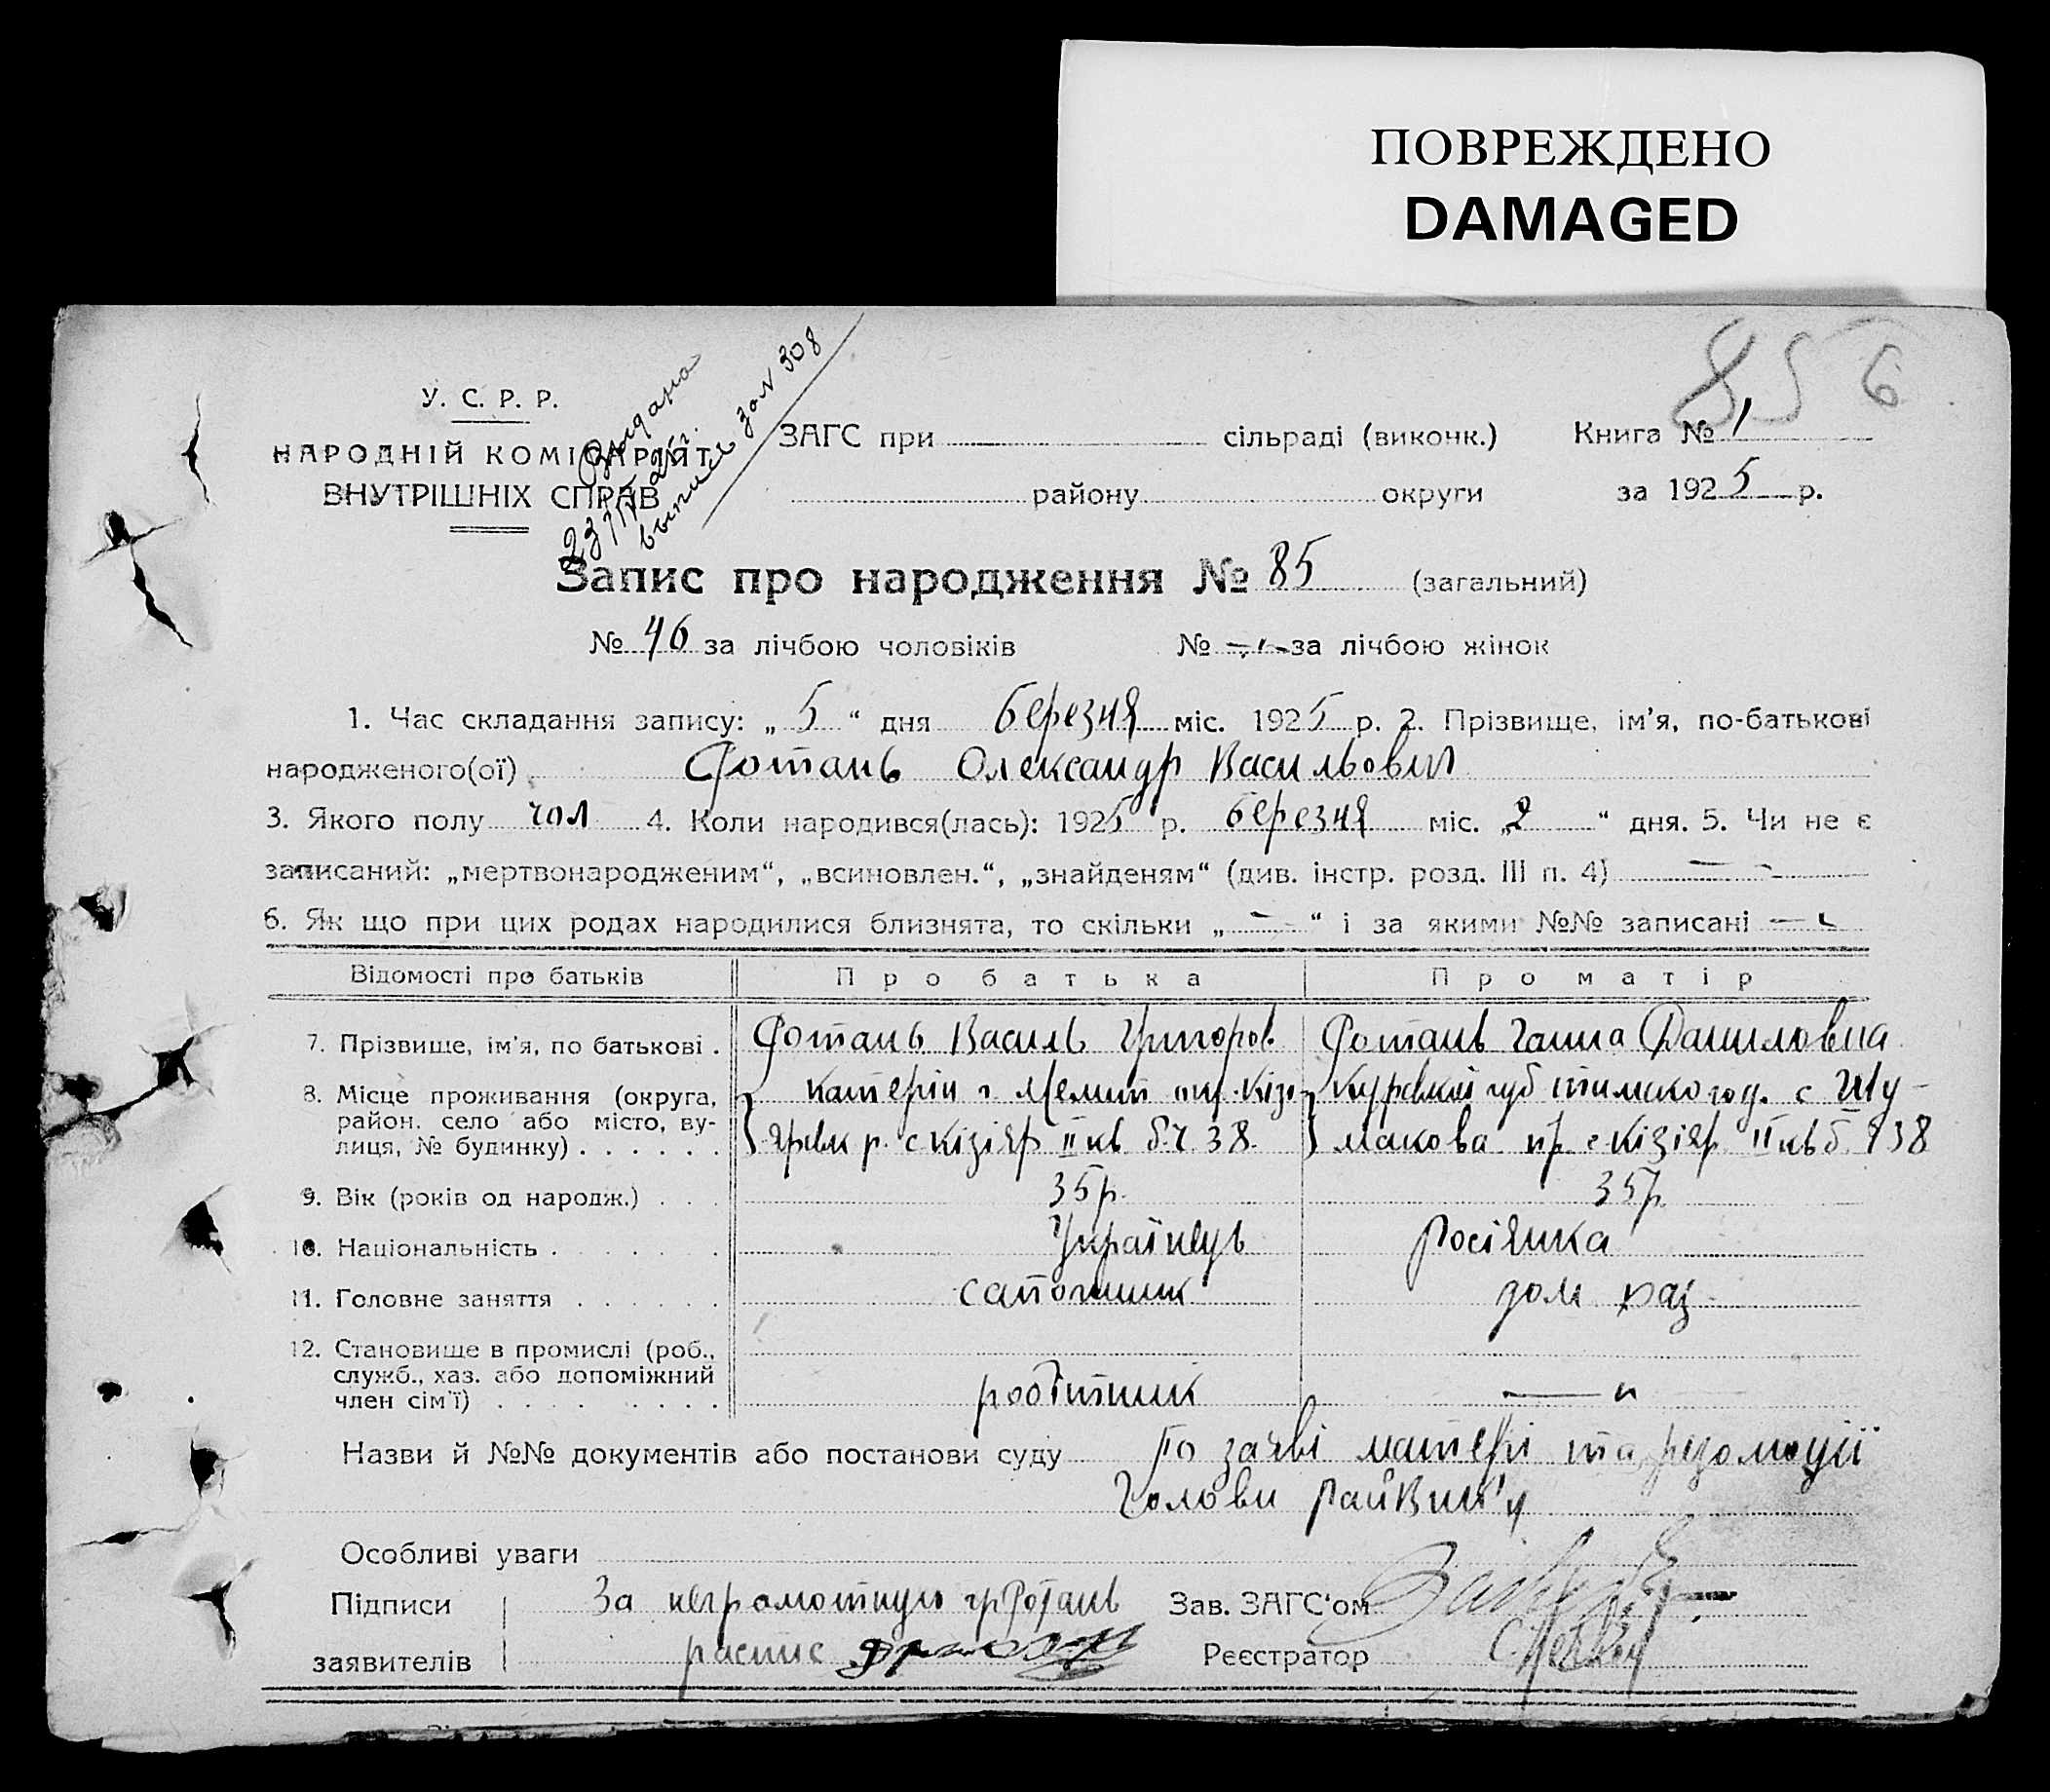 ПОВРЕЖДЕНО
DAMAGED
856
У. С. Р. Р.
НАРОДНІЙ КОМІСАРІЯТ
ВНУТРІШНІХ СПРАВ
Выдана
23/IV 25 г.
выпись за N 308
ЗАГС при сільраді (виконк.) Книга № 1
району округи за 1925 р.
Запис про народження № 85 (загальний)
№ 46 за лічбою чоловіків № за лічбою жінок
1. Час складання запису: „ 5 “ дня березня міс. 1925 р. 2. Прізвище, ім’я, по-батькові
народженого(ої) Фотань Олександр Васильович
3. Якого полу чол 4. Коли народився(лась): 1925 р. березня міс. „2 “ дня. 5. Чи не є
записаний: „мертвонародженим“, „всиновлен.“, „знайденям“ (див. інстр. розд. III п. 4) —
6. Як що при цих родах народилися близнята, то скільки „ — “ і за якими №№ записані —
Відомості про батьків Про батька Про матір
7. Прізвище, ім’я, по батькові . Фотань Василь Григоров. Фотань Ганна Даниловна
8. Місце проживання (округа, Катерін г. Мелит окр. Кізі- Курської губ с Шу-
район, село або місто, ву-
лиця, № будинку) . . . . . . ярськ р. с Кізіяр II кв б.ч. 38. макова пр. с Кізіяр II кв б. ч 38
9. Вік (років од народж.) . . . 35 р. 35 р.
10. Національність . . . . . . . Українець Росіянка
11. Головне заняття . . . . . . сапожник дом хаз
12. Становище в промислі (роб.,
служб., хаз. або допоміжний
член сім’ї) . . . . . . . . робітник — "
Назви й №№ документів або постанови суду По заяві матері та резолюції
Голови РайВик'у
Особливі уваги
Підписи За неграмотную гр Фотань Зав. ЗАГС’ом
заявителів распис Реєстратор